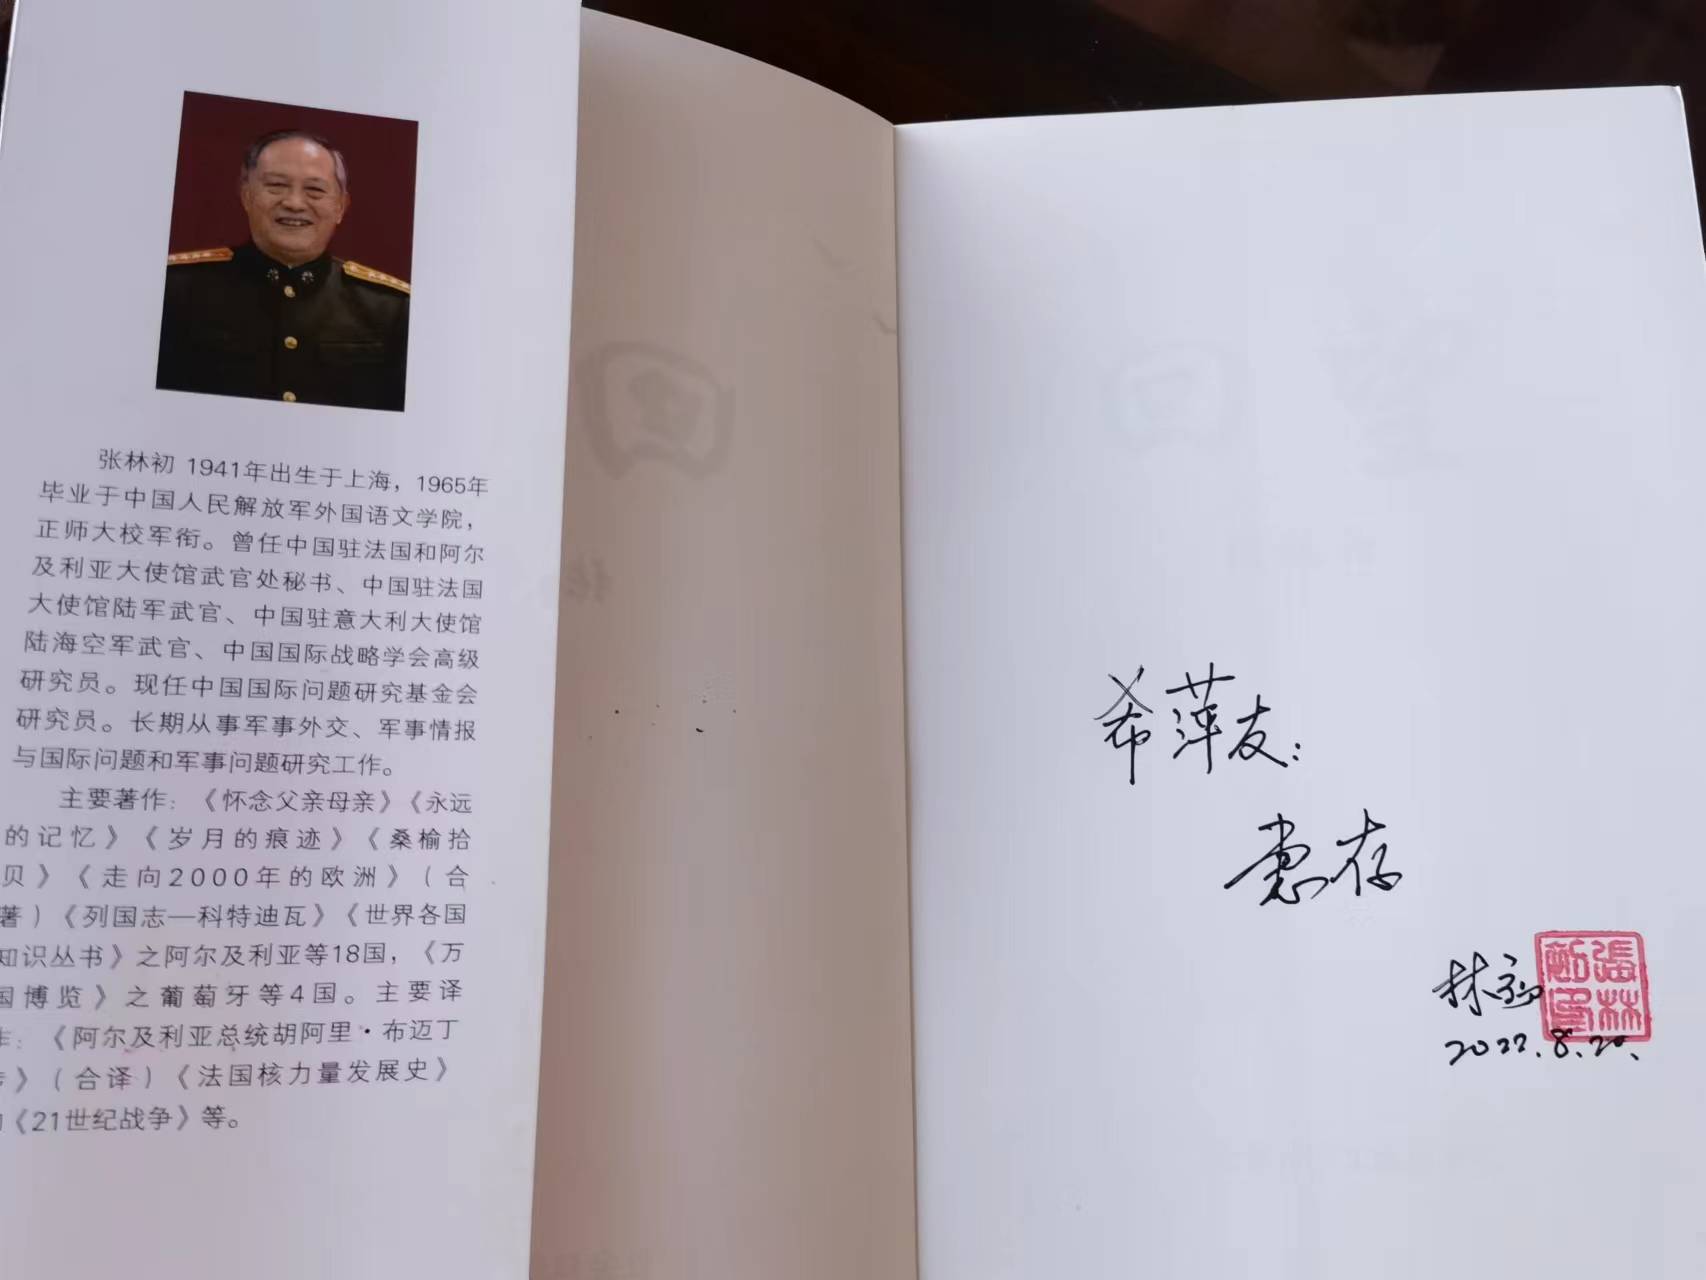 张林初 1941年出生于上海，1965年
毕业于中国人民解放军外国语文学院，
正师大校军衔。曾任中国驻法国和阿尔
及利亚大使馆武官处秘书、中国驻法国
大使馆陆军武官、中国驻意大利大使馆
陆海空军武官、中国国际战略学会高级
研究员。现任中国国际问题研究基金会
研究员。长期从事军事外交、军事情报
与国际问题和军事问题研究工作。
主要著作：《怀念父亲母亲》《永远
的记忆》《岁月的痕迹》《桑榆拾
贝》《走向2000年的欧洲》（合
著）《列国志—科特迪瓦》《世界各国
知识丛书》之阿尔及利亚等18国，《万
国博览》之葡萄牙等4国。主要译
作：《阿尔及利亚总统胡阿里·布迈丁
传》（合译）《法国核力量发展史》
《21世纪战争》等。
希萍友：
惠存
林初
張林初印
2022.8.20.
回望